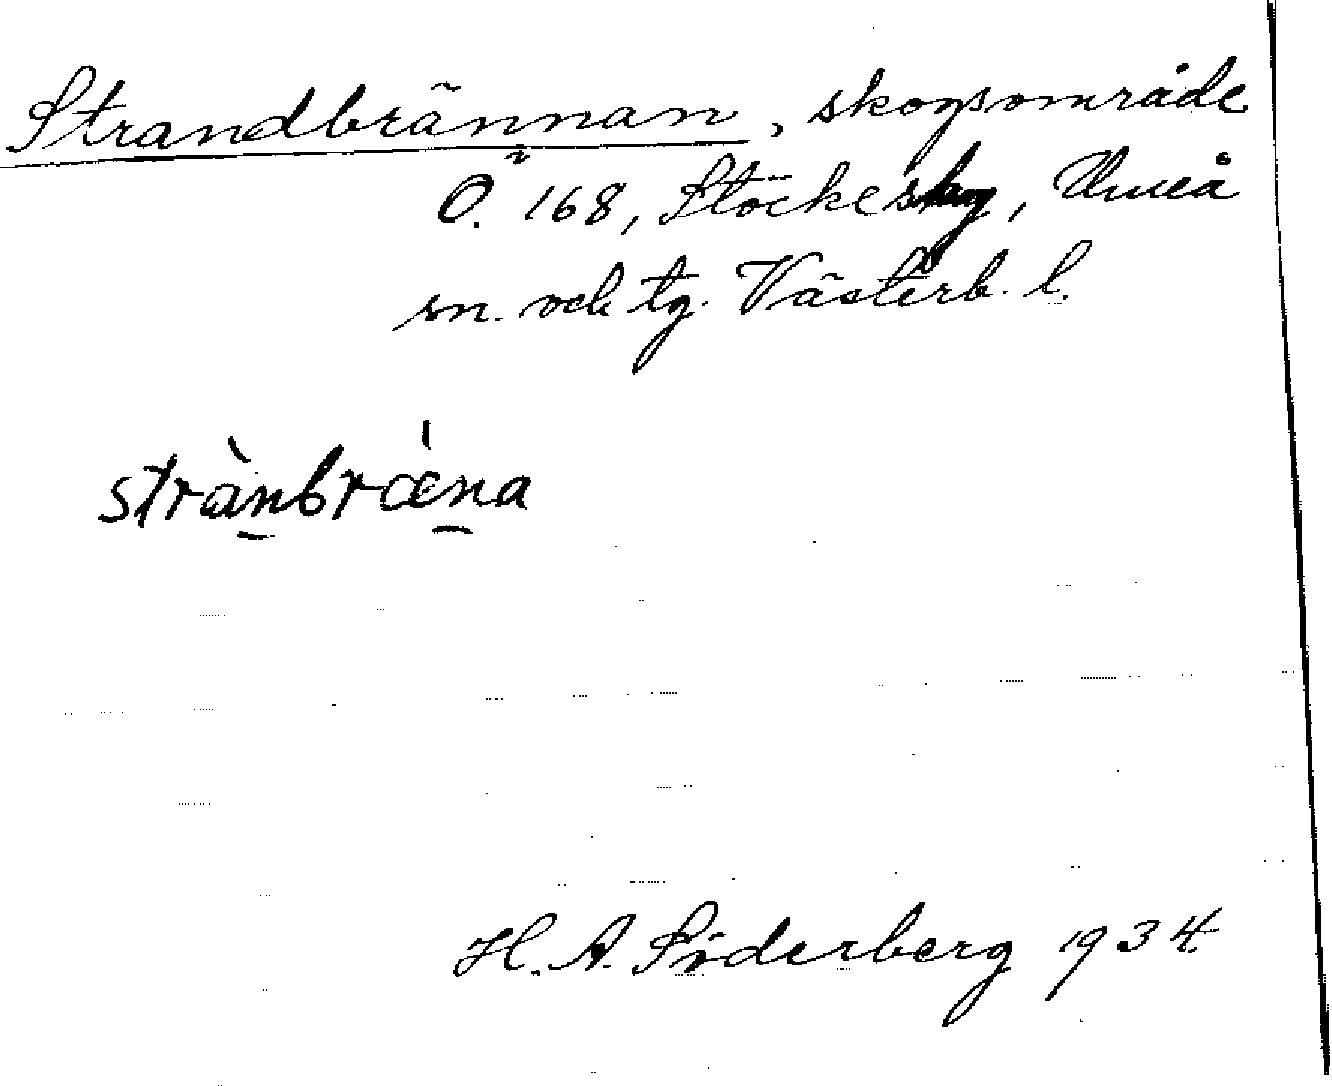 Strandbrännan, skogsområde
Ö. 168, Stöcke, Umeå
sn. och tg. Västerb. l.
strànbræ̀na
H. A. Söderberg 1934